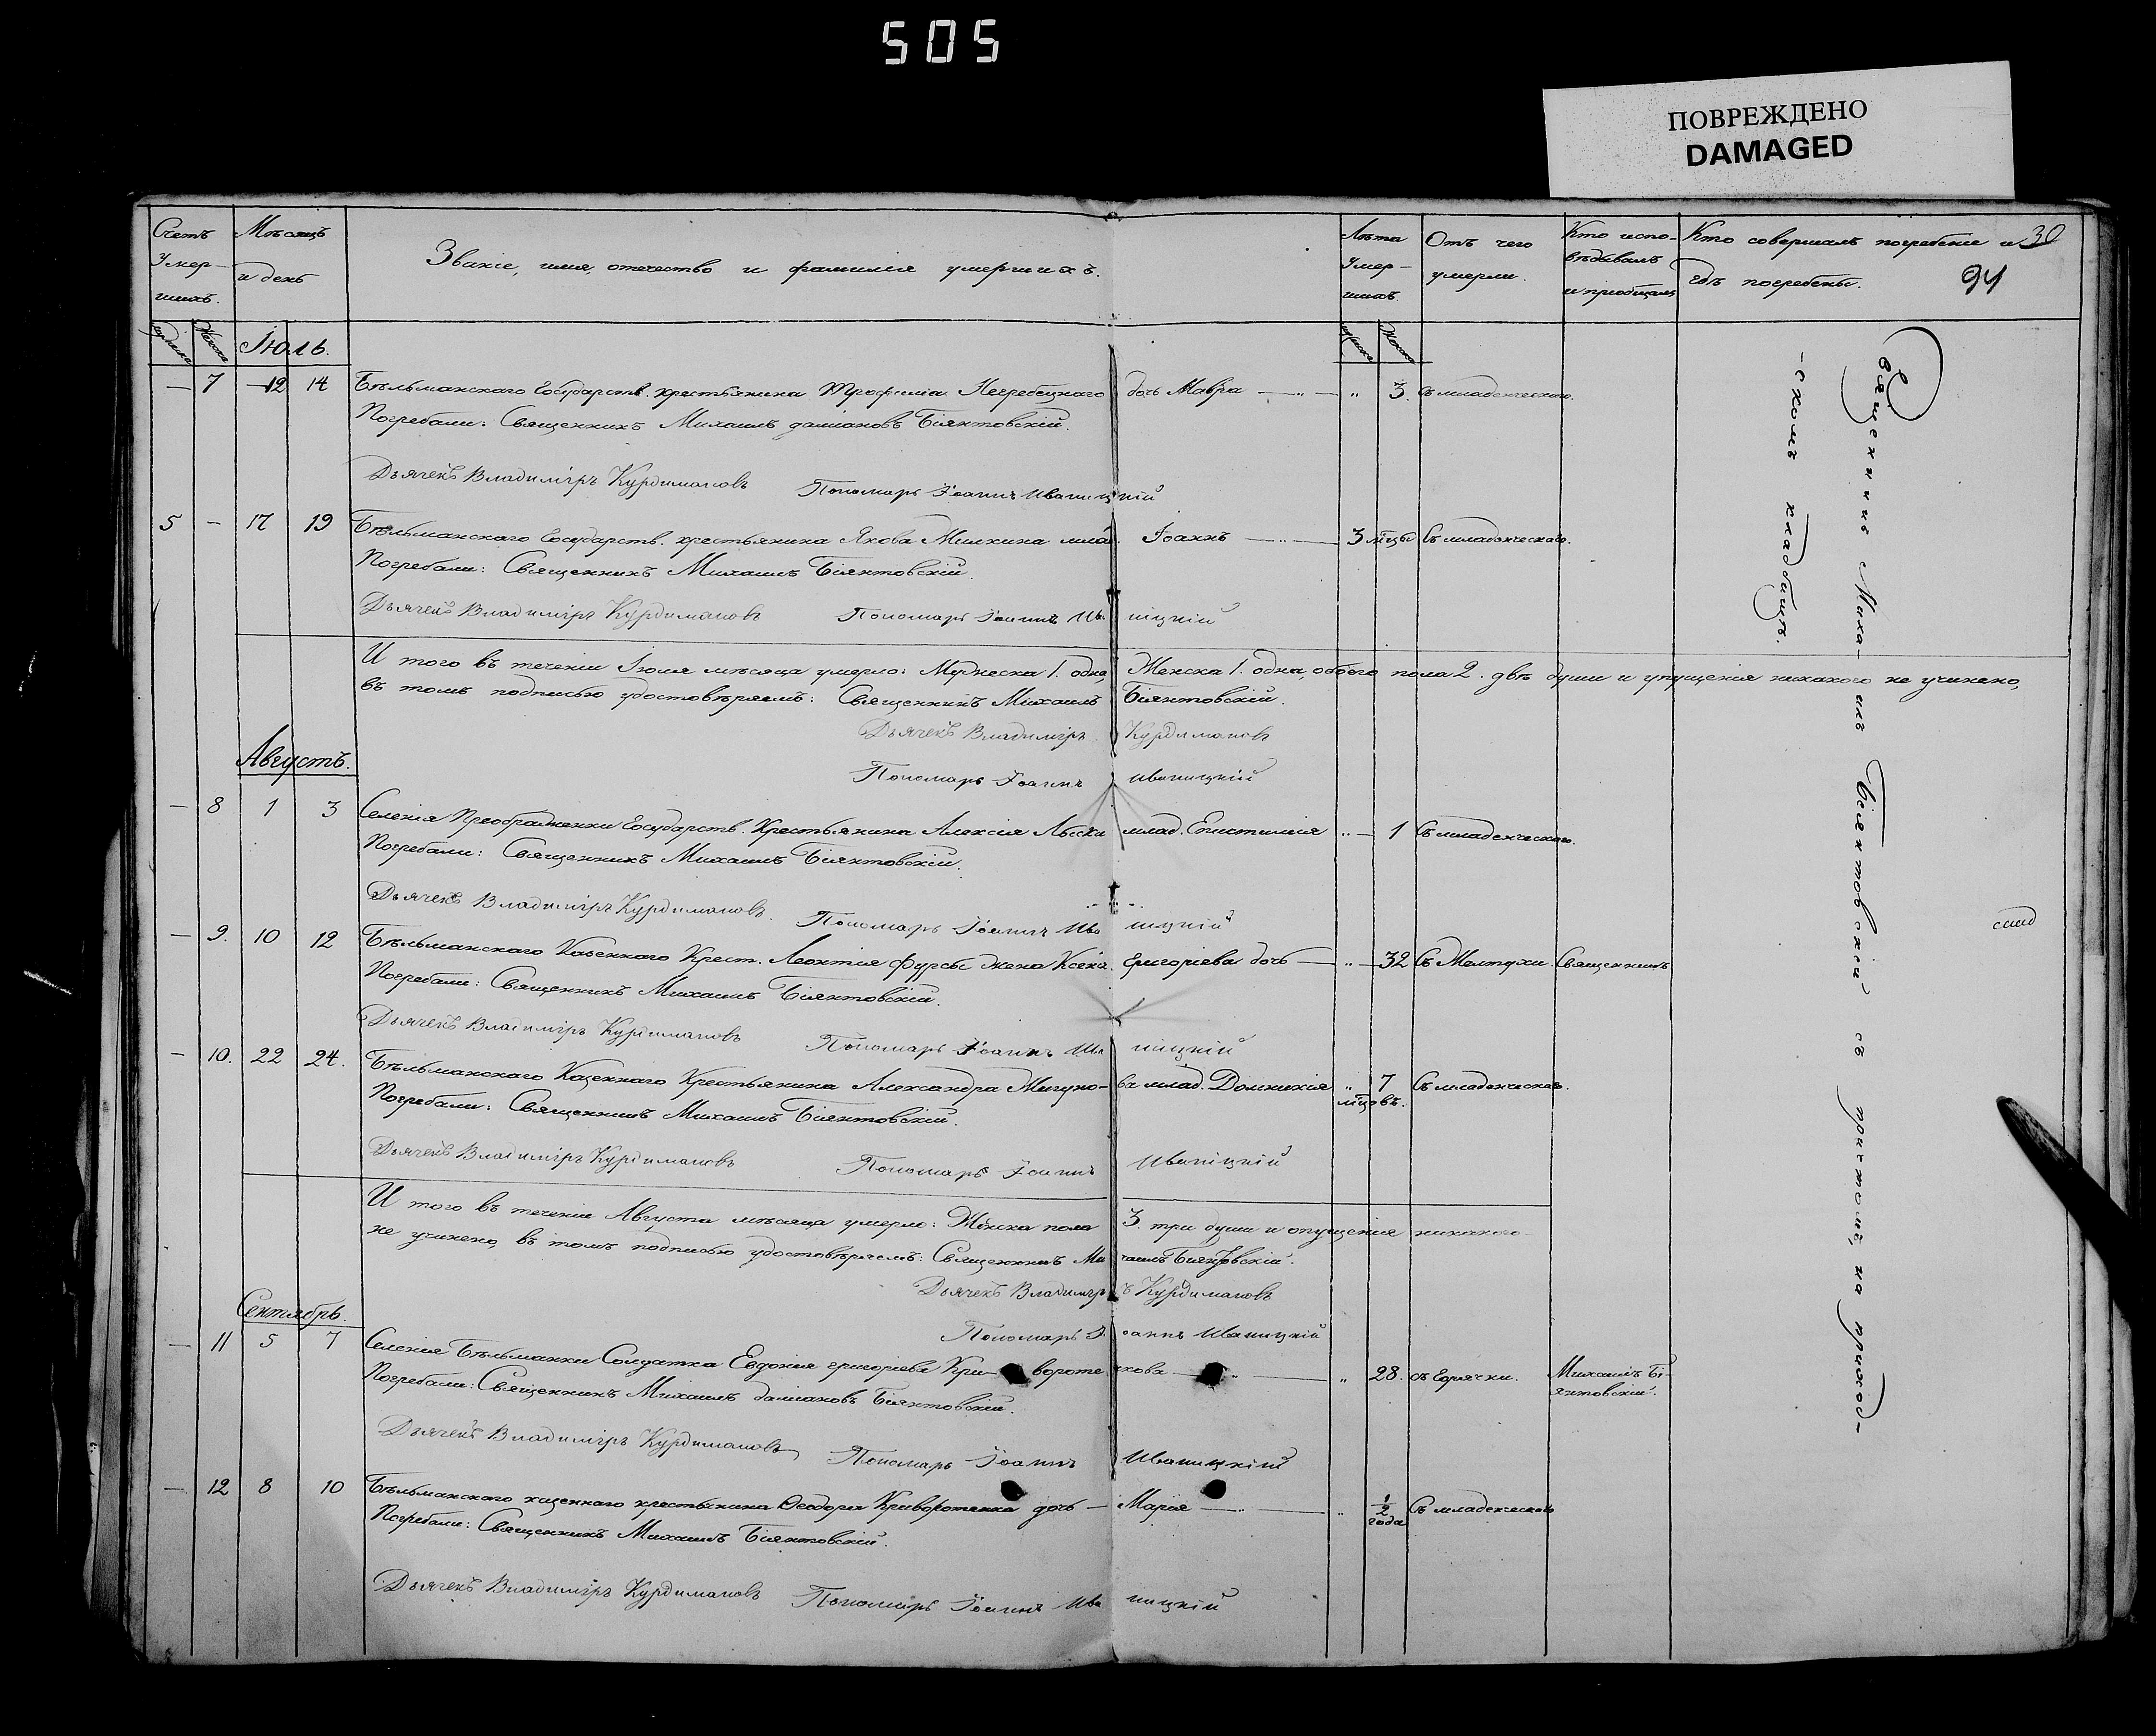 505
ПОВРЕЖДЕНО
DAMAGED
30
94
Счетъ Умер-шихъ.
Мѣсяцъ и день
Званіе, имя, отечество и фамилія умершихъ.
Лѣта Умер-шихъ.
Отъ чего умерли.
Кто испо-вѣдывалъ и пріобщалъ
Кто совершалъ погребеніе и гдѣ погребены.
Іюль.
— 7 12 14 Бѣльманскаго Государств. крестьянина Трофимія Негребецкаго дочь Мавра — „ 3. Съ младенческаго.
Погребали: Священникъ Михаилъ даміановъ Біянтовскій.
Дьячекъ Владиміръ Курдимановъ Пономарь Іоаннъ Иваницкій
5 — 17 19 Бѣльманскаго Государств. крестьянина Якова Милкина млад. Іоаннъ — 3 мцы Съ младенческаго.
Погребали: Священникъ Михаилъ Біянтовскій.
Дьячекъ Владиміръ Курдимановъ Пономарь Іоаннъ Иваницкій
И того въ теченіи Іюля мѣсяца умерло: Мужеска 1. одна, Женска 1. одна, обоего пола 2. двѣ души и упущенія никакого не учинено,
въ томъ подписью удостовѣряемъ: Священникъ Михаилъ Біянтовскій.
Дьячекъ Владиміръ Курдимановъ
Пономарь Іоаннъ Иваницкій
Августъ.
— 8 1 3 Селенія Преображенки Государств. Крестьянина Алексія Лыски млад. Епистимія „ — 1 Съ младенческаго.
Погребали: Священникъ Михаилъ Біянтовскій.
Дьячекъ Владиміръ Курдимановъ. Пономарь Іоаннъ Иваницкій
— 9. 10 12 Бѣльманскаго Казеннаго Крест. Леонтія Фурсы жена Ксенія Григоріева дочь — „ — 32 Съ Желтухи. Священникъ
Погребали: Священникъ Михаилъ Біянтовскій.
Дьячекъ Владиміръ Курдимановъ Пономарь Іоаннъ Иваницкій
— 10. 22 24. Бѣльманскаго Казеннаго Крестьянина Александра Мигуно-ва млад. Домникія „ 7 мцовъ. Съ младенческаго.
Погребали: Священникъ Михаилъ Біянтовскій.
Дьячекъ Владиміръ Курдимановъ Пономарь Іоаннъ Иваницкій
И того въ теченіи Августа мѣсяца умерло: Женска пола 3. три души и опущенія никакого
не учинено, въ томъ подписью удостовѣряемъ: Священникъ Михаилъ Біянтовскій.
Дьячекъ Владиміръ Курдимановъ
Пономарь Іоаннъ Иваницкій
Сентябрь.
— 11 5 7 Селенія Бѣльманки Солдатка Евдокія григоріева Кри-вороте нкова — „ 28. съ Горячки. Михаилъ Бі-янтовскій.
Погребали: Священникъ Михаилъ даміановъ Біянтовскій.
Дьячекъ Владиміръ Курдимановъ Пономарь Іоаннъ Иваницкій
— 12 8 10 Бѣльманскаго казеннаго крестьянина Ѳеодора Криворотенка дочь — Марія — „ 1/2 года Съ младенческаго
Погребали: Священникъ Михаилъ Біянтовскій.
Дьячекъ Владиміръ Курдимановъ Пономарь Іоаннъ Иваницкій
Священникъ Миха-илъ Біянтовскій съ причтомъ, на приход-
-скомъ кладбищѣ.